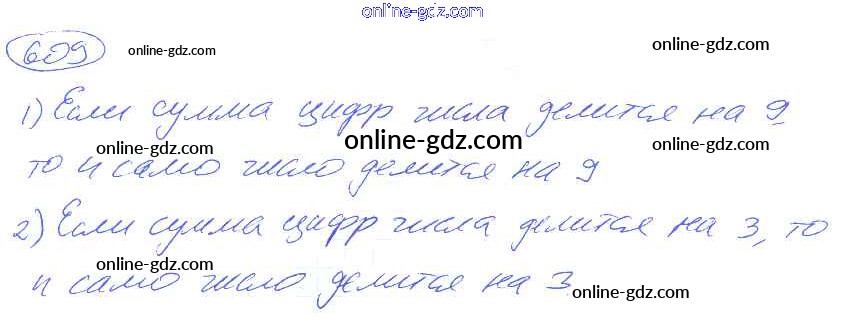 online-gdz.com
609
online-gdz.com
online-gdz.com
1) Если сумма цифр числа делится на 9,
online-gdz.com
то и само число делится на 9
2) Если сумма цифр числа делится на 3, то
online-gdz.com
online-gdz.com
и само число делится на 3
online-gdz.com